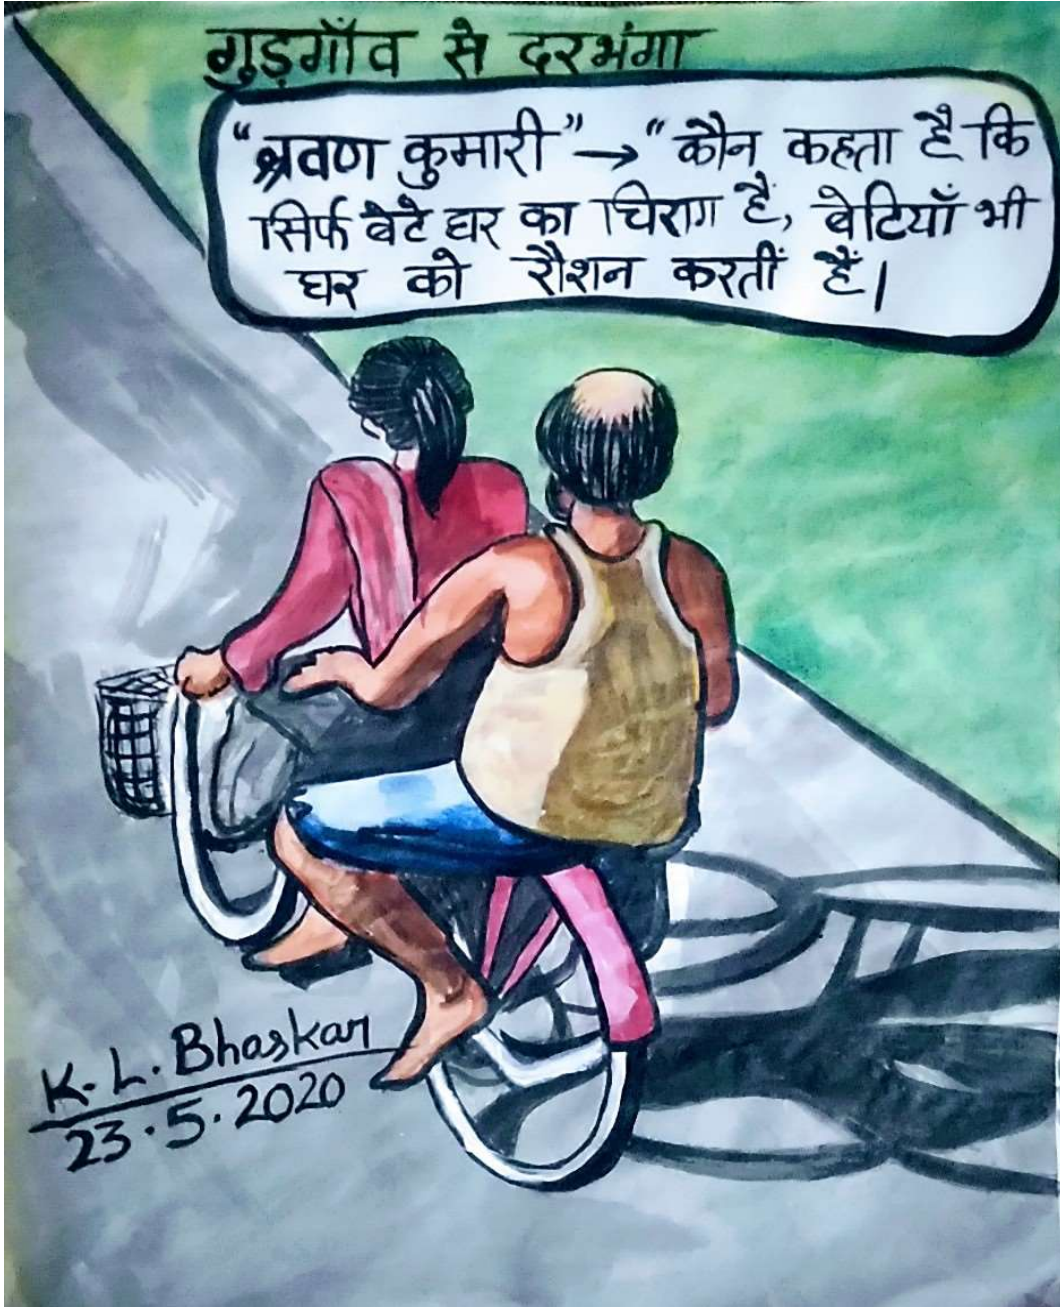 गुड़गाँव से दरभंगा
"श्रवण कुमारी" → "कौन कहता है कि
सिर्फ बेटे घर का चिराग हैं, बेटियाँ भी
घर को रौशन करतीं हैं।
K. L. Bhaskar
23.5.2020